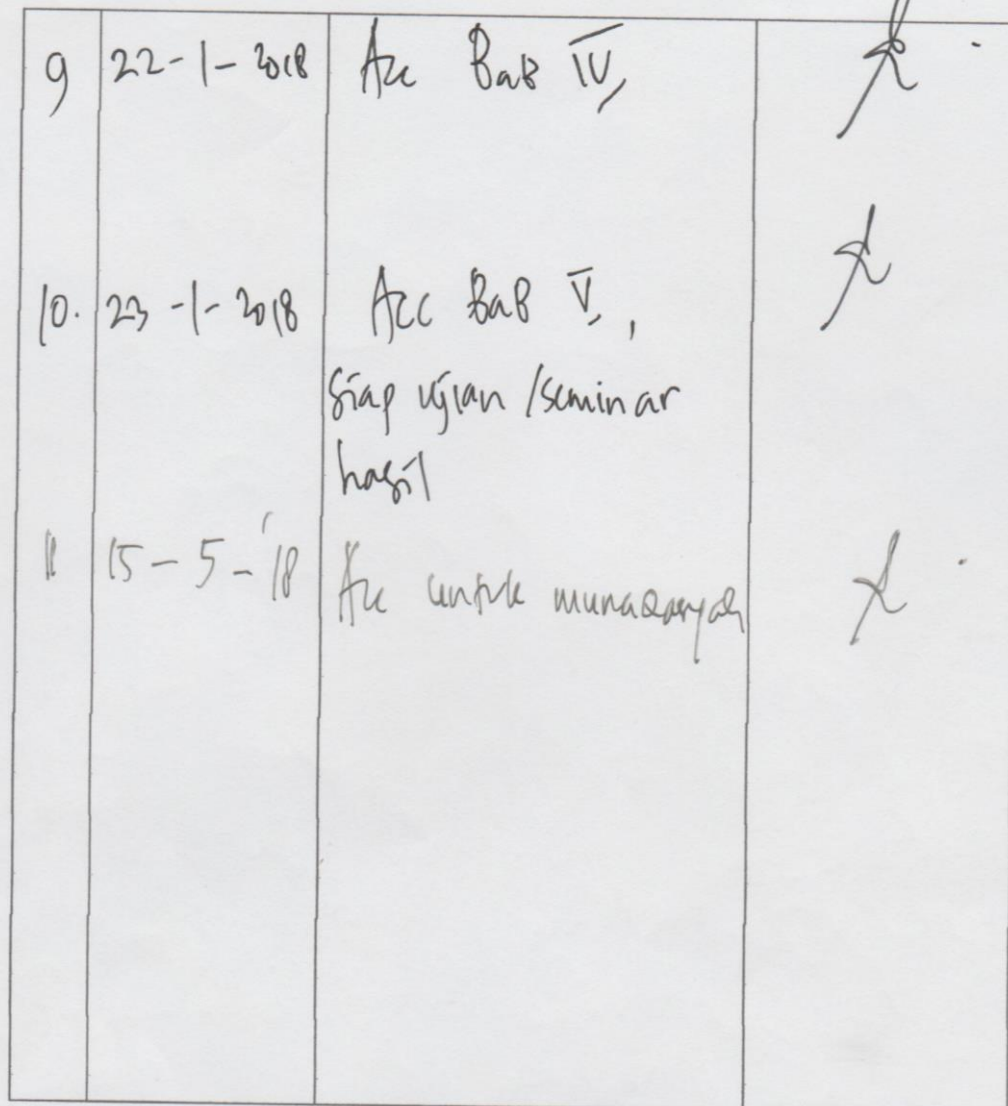 9 22-1-2018 Acc Bab IV,
10. 23-1-2018 Acc Bab V,,
siap ujian /seminar
hasil
11 15-5-'18 Acc untuk munaqasyah